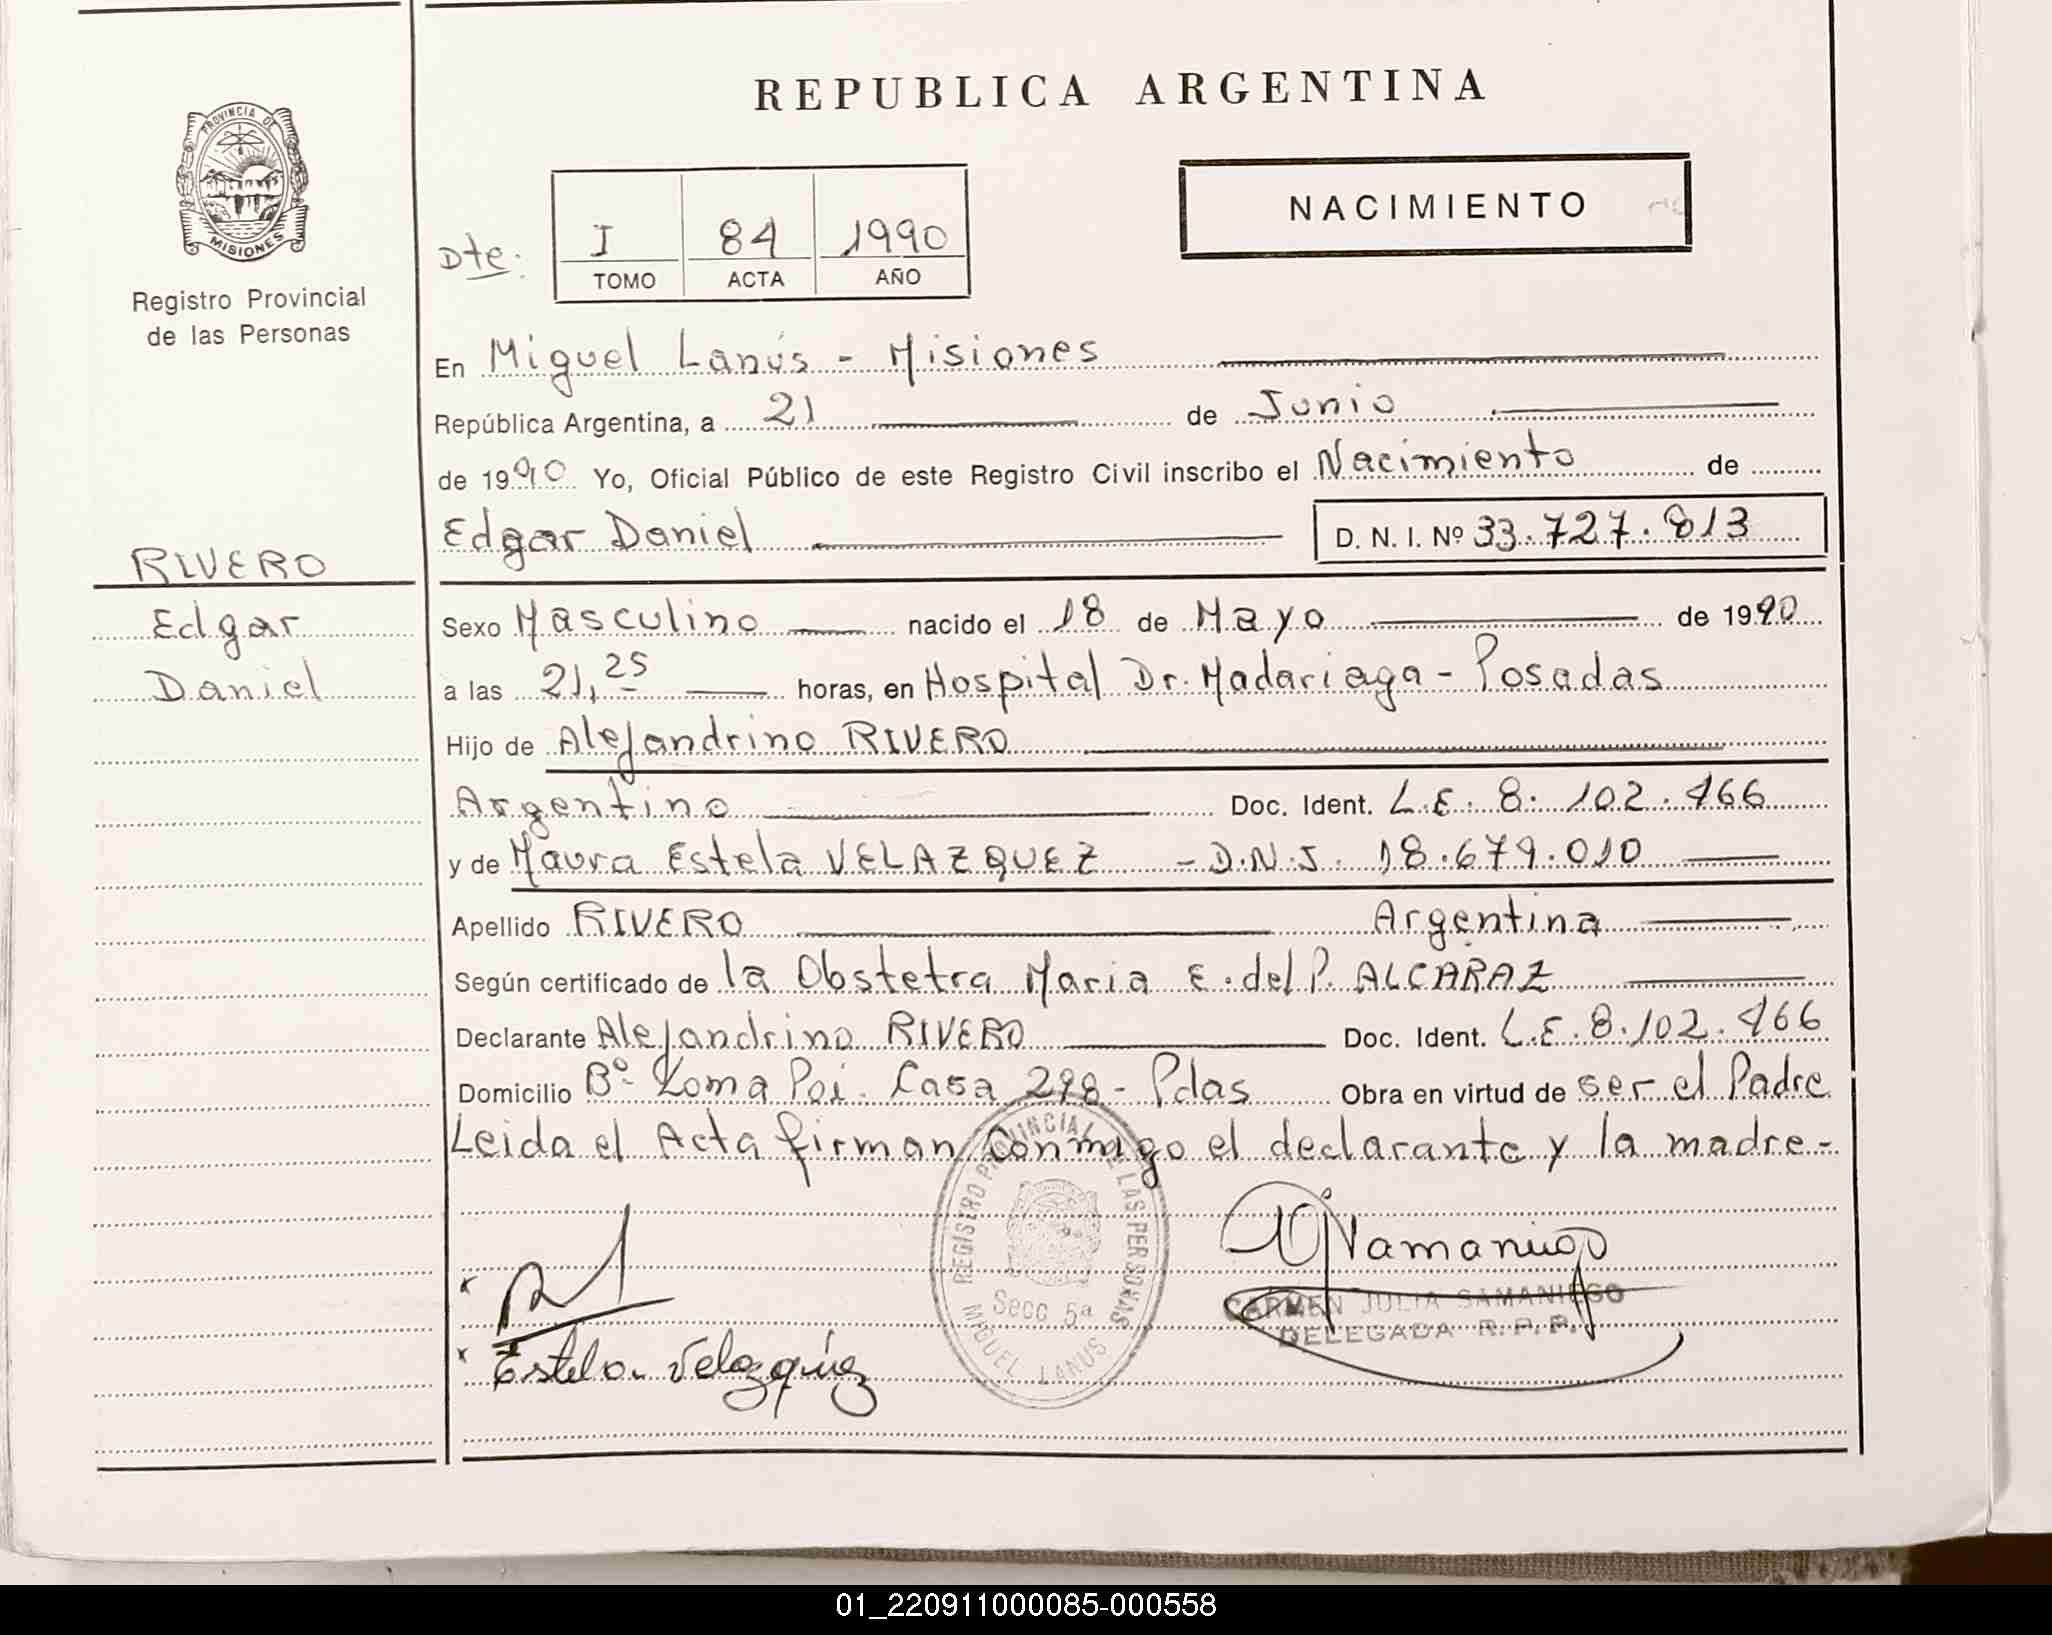 REPUBLICA ARGENTINA
PROVINCIA DE
MISIONES
Registro Provincial
de las Personas
NACIMIENTO
Dte:
I 84 1990
TOMO ACTA AÑO
En Miguel Lanús - Misiones
República Argentina, a 21 de Junio
de 1990 Yo, Oficial Público de este Registro Civil inscribo el Nacimiento de
Edgar Daniel D. N. I. Nº 33.727.813
RIVERO
Edgar
Daniel
Sexo Masculino nacido el 18 de Mayo de 1990
a las 21,25 horas, en Hospital Dr. Madariaga - Posadas
Hijo de Alejandrino RIVERO
Argentino Doc. Ident. L.E. 8.102.466
y de Maura Estela VELAZQUEZ - D.N.I. 18.679.010
Apellido RIVERO Argentina
Según certificado de la Obstetra Maria E. del P. ALCARAZ
Declarante Alejandrino RIVERO Doc. Ident. L.E. 8.102.466
Domicilio Bº Loma Poi. Casa 298 - Pdas Obra en virtud de ser el Padre
Leida el Acta firman conmigo el declarante y la madre.-
REGISTRO PROVINCIAL DE LAS PERSONAS
Secc 5a
MIGUEL LANUS
CARMEN JULIA SAMANIEGO
DELEGADA R.P.P.
Estela Velazquez
01_220911000085-000558